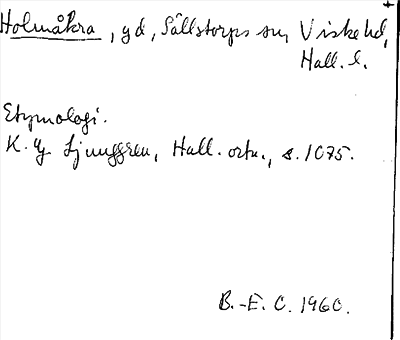 Holmåkra, gd, Sällstorps sn, Viske hd,
Hall. l.
Etymologi.
K. G. Ljunggren, Hall. ortn., s. 1075.
B.-E. O. 1960.